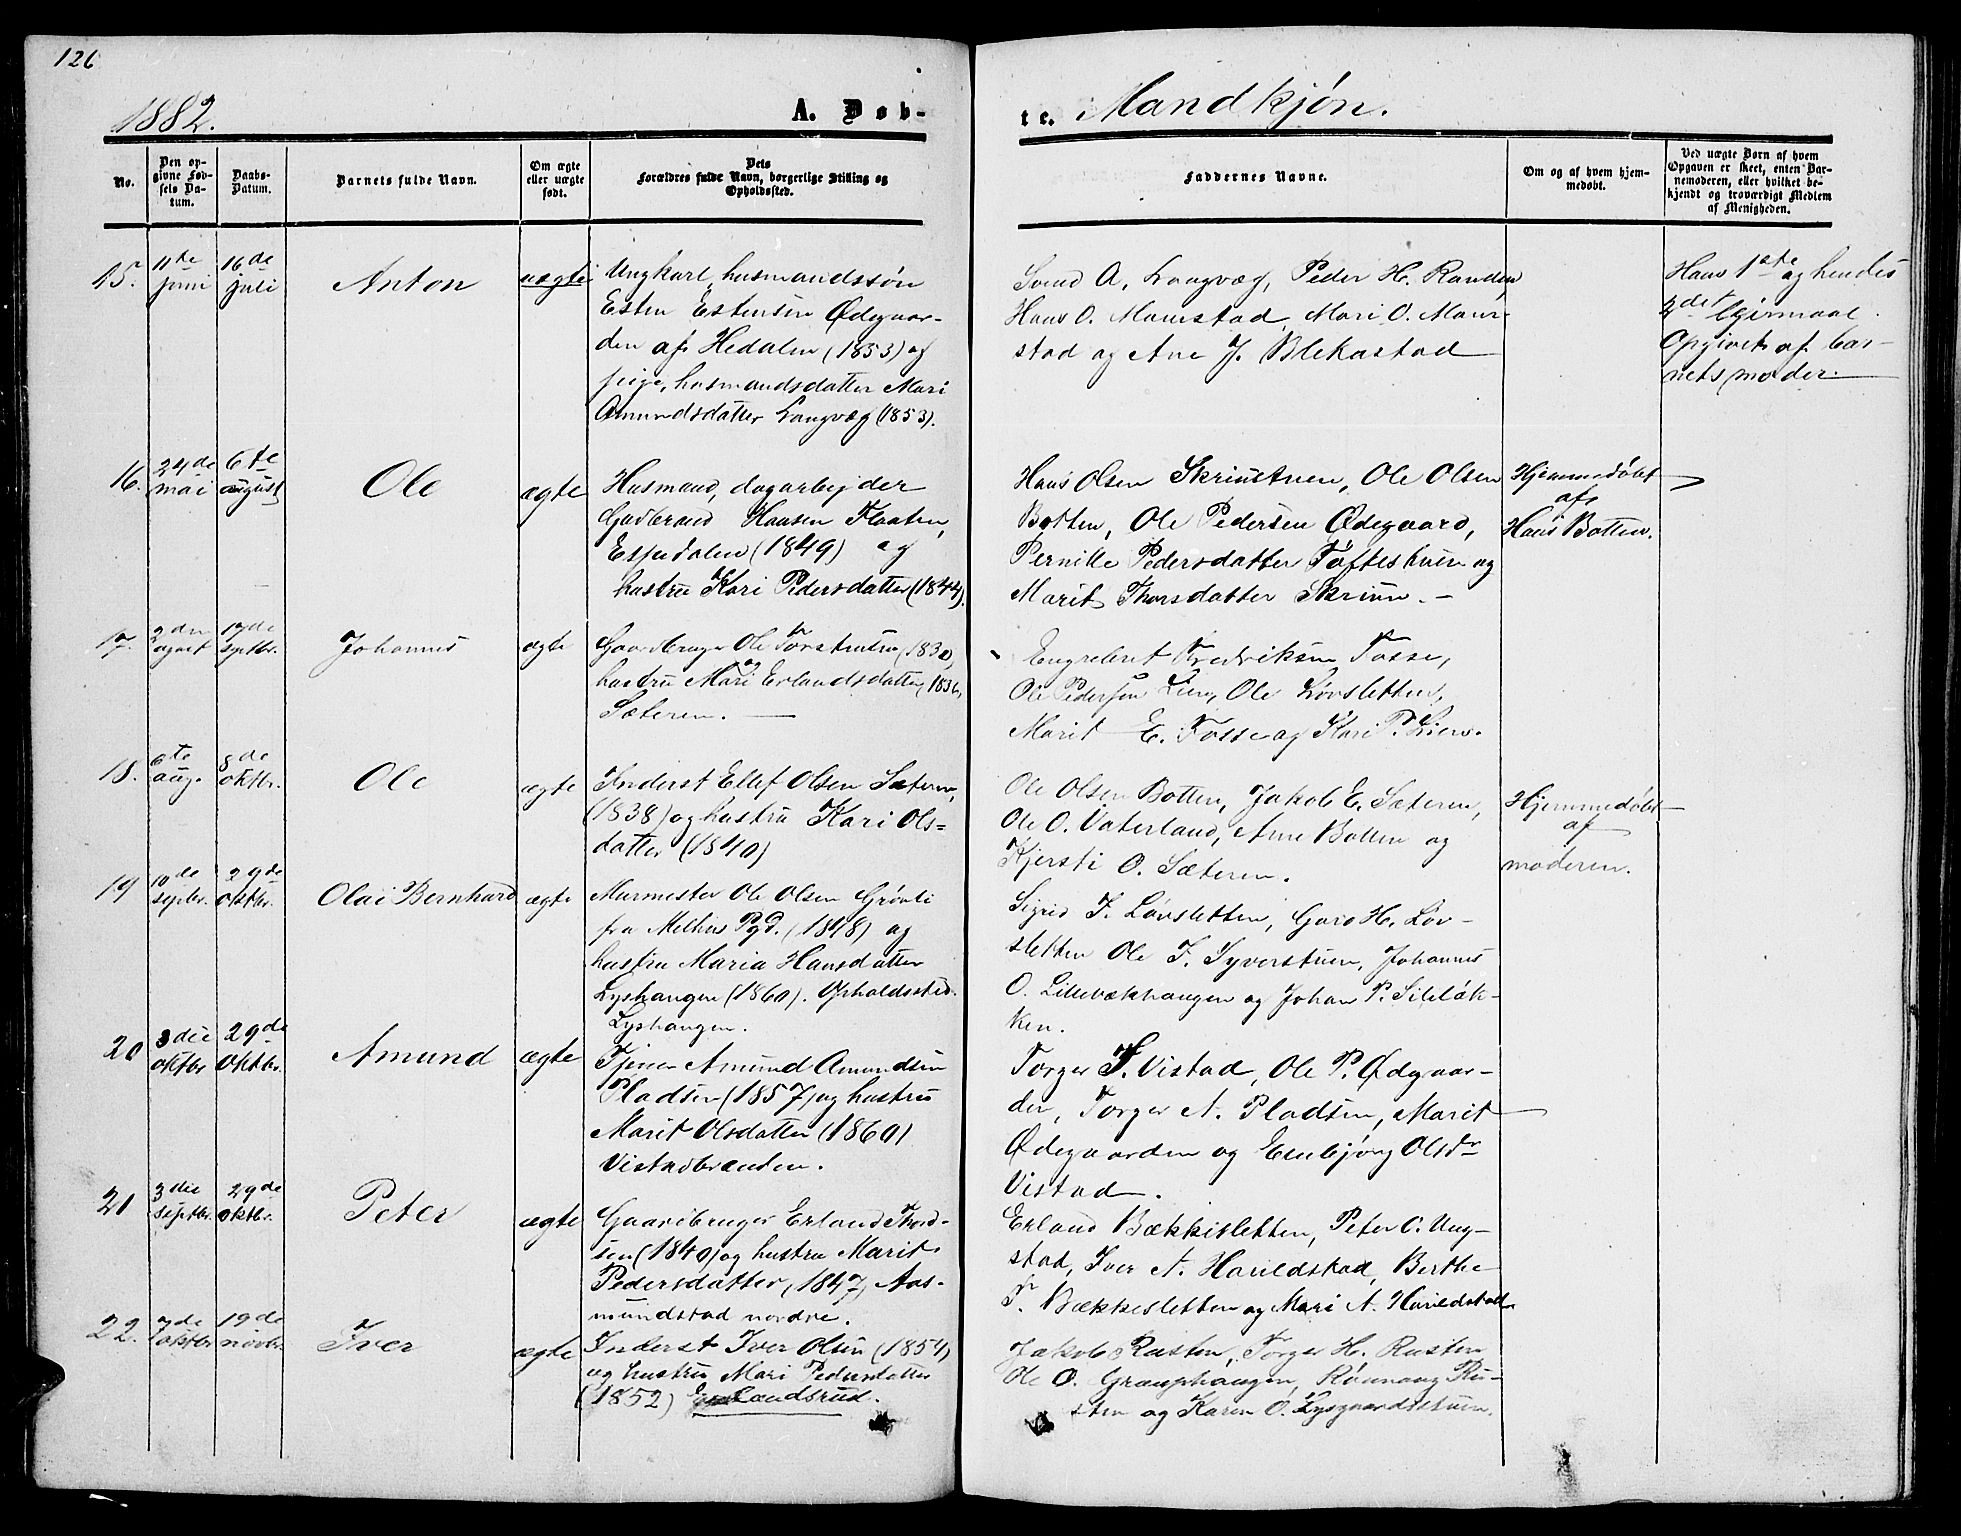 126
1882.
A. Døb-
te. Mandkjøn.
No.
Den op-
givne Fød-
sels Da-
tum.
Daabs-
Datum.
Barnets fulde Navn.
Om ægte
eller uægte
født.
Dets
Forældres fulde Navn, borgerlige Stilling og
Opholdssted.
Faddernes Navne.
Om og af hvem hjem-
medøbt.
Ved uægte Børn af hvem
Opgaven er skeet, enten Bar-
nemoderen, eller hvilket be-
kjendt og troværdigt Medlem
af Menigheden.
15.
11te
juni
16de
juli
Anton
uægte
Ungkarl, husmandssøn
Esten Estensen Ødegaar-
den af Hedalen (1853) og
pige, husmandsdatter Mari
Amundsdatter Langvæg (1853).
Svend A. Langvæg, Peder H. Randen
Hans O. Maurstad, Mari O. Maur-
stad og Ane J. Blekastad
Hans 1ste og hendes
2det leiermaal.
Opgivet af bar-
nets moder.
16.
24de
mai
6te
august
Ole
ægte
Husmand, dagarbejder
Gudbrand Hansen Flaaten,
Espedalen (1849) og
hustru Kari Pedersdatter (1844).
Hans Olsen Skriustuen, Ole Olsen
Botten, Ole Pedersen Ødegaard,
Pernille Pedersdatter Tofteshuen og
Marit Thorsdatter Skriuu. -
Hjemmedøbt
af
Hans Botten.
17.
2den
17de
septbr.
Johannes
ægte
Gaardbruger Ole Torstensen (1830)
og
hustru Mari Erlandsdatter, 1836,
Sæteren.
Engebret Fredriksen Fosse,
Ole Pedersen Lien, Ole Løvsletten,
Marit E. Fosse og Kari P. Lien.
18.
6te
aug.
8de
oktbr.
Ole
ægte
Inderst Ellef Olsen Sæteren,
(1838) og hustru Kari Ols=
datter (1840)
Ole Olsen Botten, Jakob E. Sæteren,
Ole O. Vaterland, Anne Botten og
Kjersti O. Sæteren.
Hjemmedøbt
af
moderen.
19
10de
septbr.
29de
oktbr.
Olai Bernhard
ægte
Murmester Ole Olsen Grønli
fra Melhus Pgd. (1848) og
hustru Maria Hansdatter
Lyshaugen (1860). Opholdssted
Lyshaugen.
Sigrid J. Løvsletten, Guro H. Løv-
sletten Ole J. Syverstuen, Johannes
O. Lillebækhaugen og Johan P. Sileløk-
ken.
20
3die
oktbr
29de
oktbr.
Amund
ægte
Tjener Amund Amundsen
Pladsen (1857) og hustru
Marit Olsdatter (1860)
Vistadbrænden.
Torger T. Vistad, Ole P. Ødegaar-
den, Torger A. Pladsen, Marit
Ødegaarden og Embjørg Olsdr
Vistad.
21
3die
septbr.
29de
oktbr.
Peter
ægte
Gaardbruger Erland Thord-
sen (1840) og hustru Marit
Pedersdatter, 1847, Aas-
mundstad nordre.
Erland Bækkisletten, Peter O. Ung-
stad, Iver A. Harildstad, Berthe
T. Bækkisletten og Mari A. Harildstad.
22.
7de
oktbr
19de
novbr.
Iver
ægte
Inderst Iver Olsen (1854)
og hustru Mari Pedersdatter
(1852) Landsrud.
Jakob Rusten, Torger H. Rusten
Ole O. Grauphaugen, Rønnaug Ru-
sten og Karen O. Lysgaardstuen.